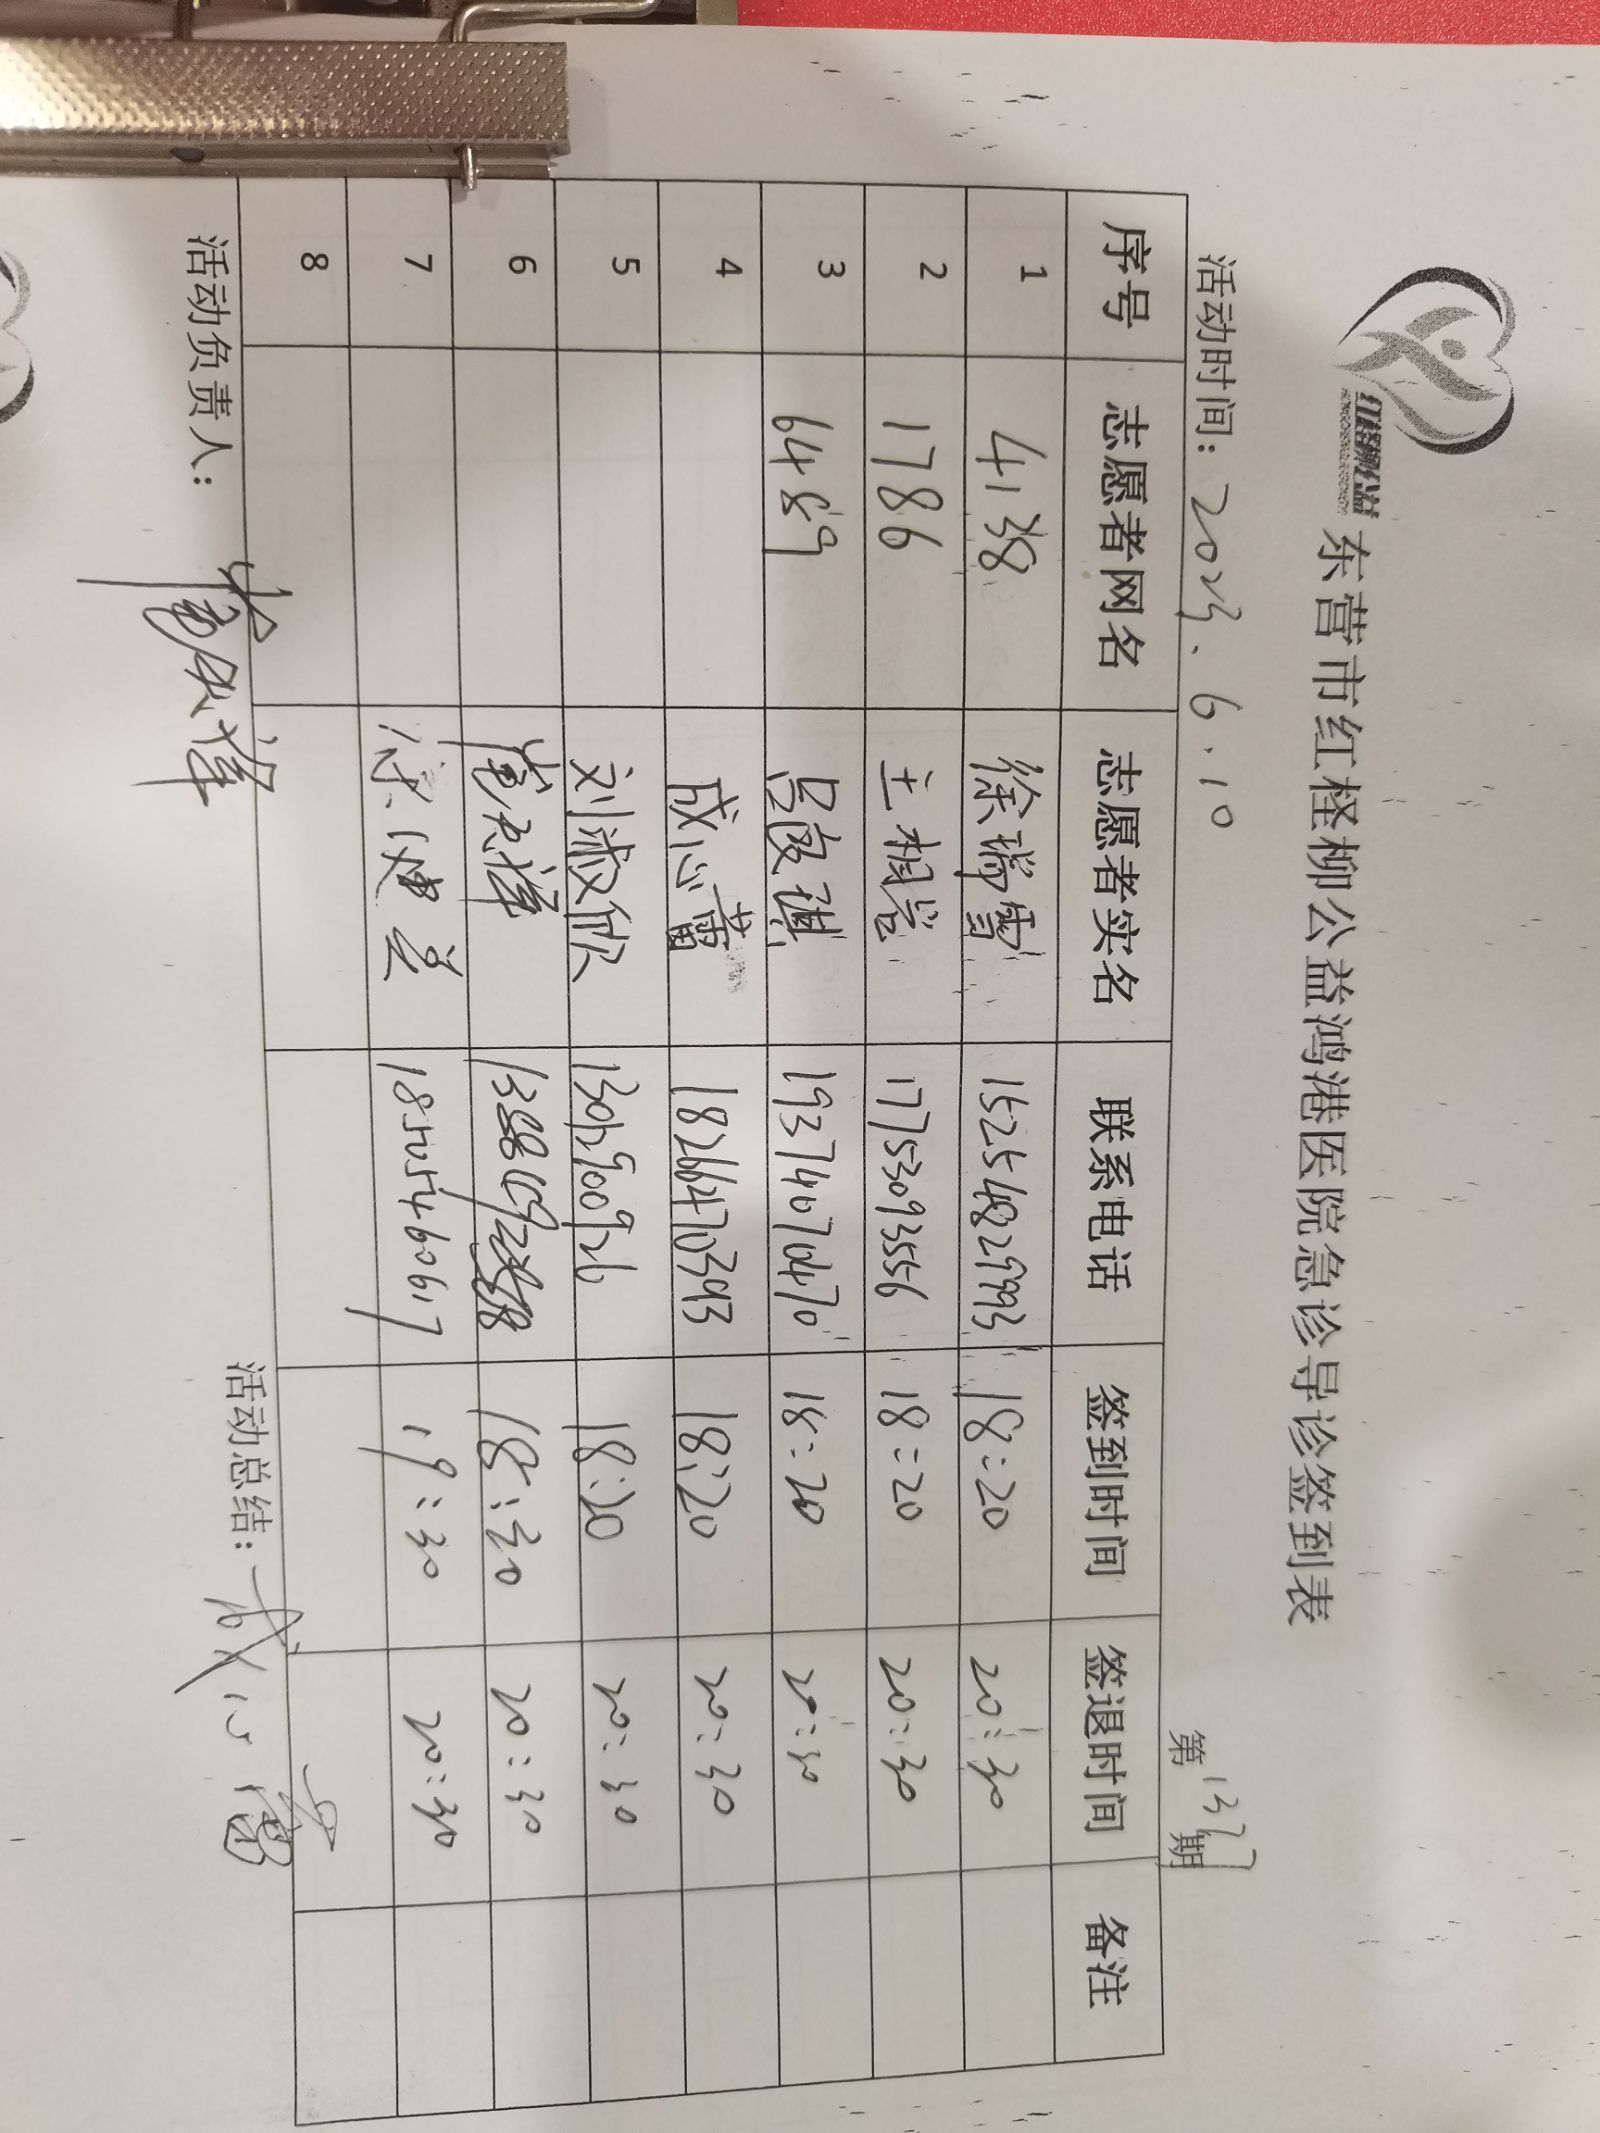 红柽柳公益
东营市红柽柳公益鸿港医院急诊导诊签到表
活动时间：2023.6.10 第137期
序号 志愿者网名 志愿者实名 联系电话 签到时间 签退时间 备注
1 4138 徐瑞雪 15254829993 18:20 20:30
2 1786 王相岩 17753093556 18:20 20:30
3 6489 吕俊淇 19374070470 18:20 20:30
4 成心蕾 18266470393 18:20 20:30
5 刘淑欣 18:20 20:30
6 18:30 20:30
7 18505460617 19:30 20:30
8
活动负责人： 活动总结：成心蕾